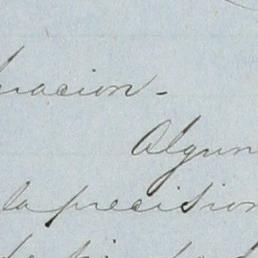 racion.-
Algun
la precision